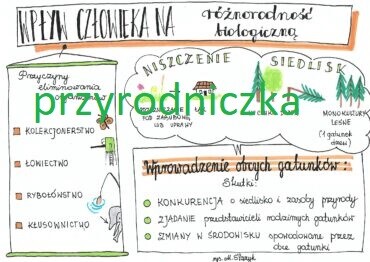 WPŁYW CZŁOWIEKA NA różnorodność
biologiczną
Przyczyny
eliminowania
organizmów
KOLEKCJONERSTWO
ŁOWIECTWO
RYBOŁÓWSTWO
KŁUSOWNICTWO
NISZCZENIE SIEDLISK
POD ZABUDOWĘ
LUB UPRAWY
MONOKULTURY
LEŚNE
(1 gatunek
drzew)
przyrodniczka
Wprowadzenie obcych gatunków:
Skutki:
KONKURENCJA o siedlisko i zasoby przyrody
ZJADANIE przedstawicieli rodzimych gatunków
ZMIANY W ŚRODOWISKU spowodowane przez
obce gatunki